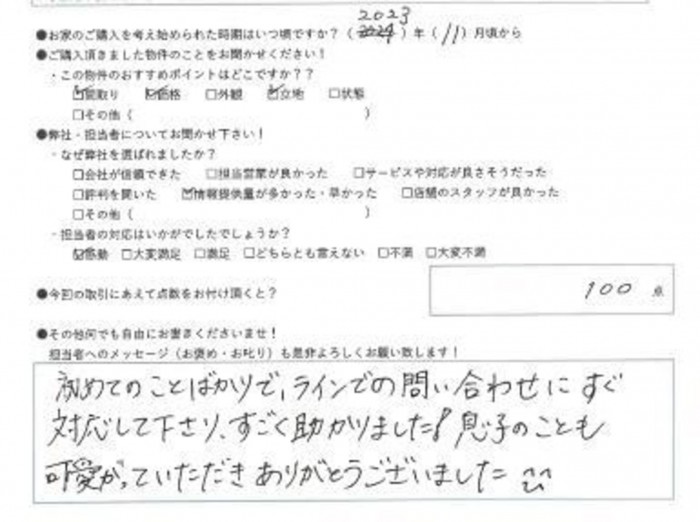 2023
●お家のご購入を考え始められた時期はいつ頃ですか？（2024）年（11）月頃から
●ご購入頂きました物件のことをお聞かせください！
・この物件のおすすめポイントはどこですか？？
☑間取り ☑価格 □外観 ☑立地 □状態
□その他（ ）
●弊社・担当者についてお聞かせ下さい！
・なぜ弊社を選ばれましたか？
□会社が信頼できた □担当営業が良かった □サービスや対応が良さそうだった
□評判を聞いた ☑情報提供量が多かった・早かった □店舗のスタッフが良かった
□その他（ ）
・担当者の対応はいかがでしたでしょうか？
☑感動 □大変満足 □満足 □どちらとも言えない □不満 □大変不満
●今回の取引にあえて点数をお付け頂くと？ 100 点
●その他何でも自由にお書きくださいませ！
担当者へのメッセージ（お褒め・お叱り）も是非よろしくお願い致します！
初めてのことばかりで、ラインでの問い合わせにすぐ
対応して下さり、すごく助かりました！息子のことも
可愛がっていただきありがとうございました